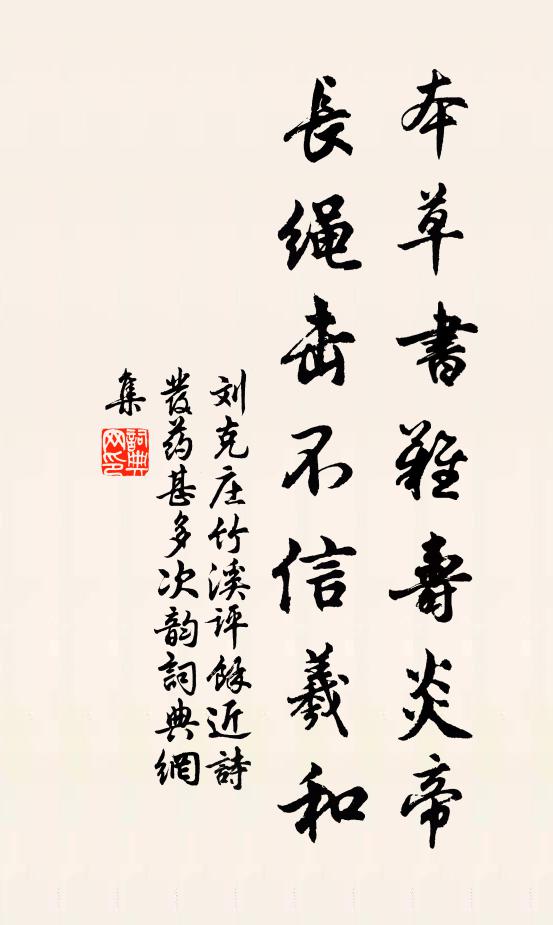 本草書難壽炎帝
長繩击不信羲和
刘克庄竹溪评餘近詩
發药甚多次韵詞典網
集
詞典网印